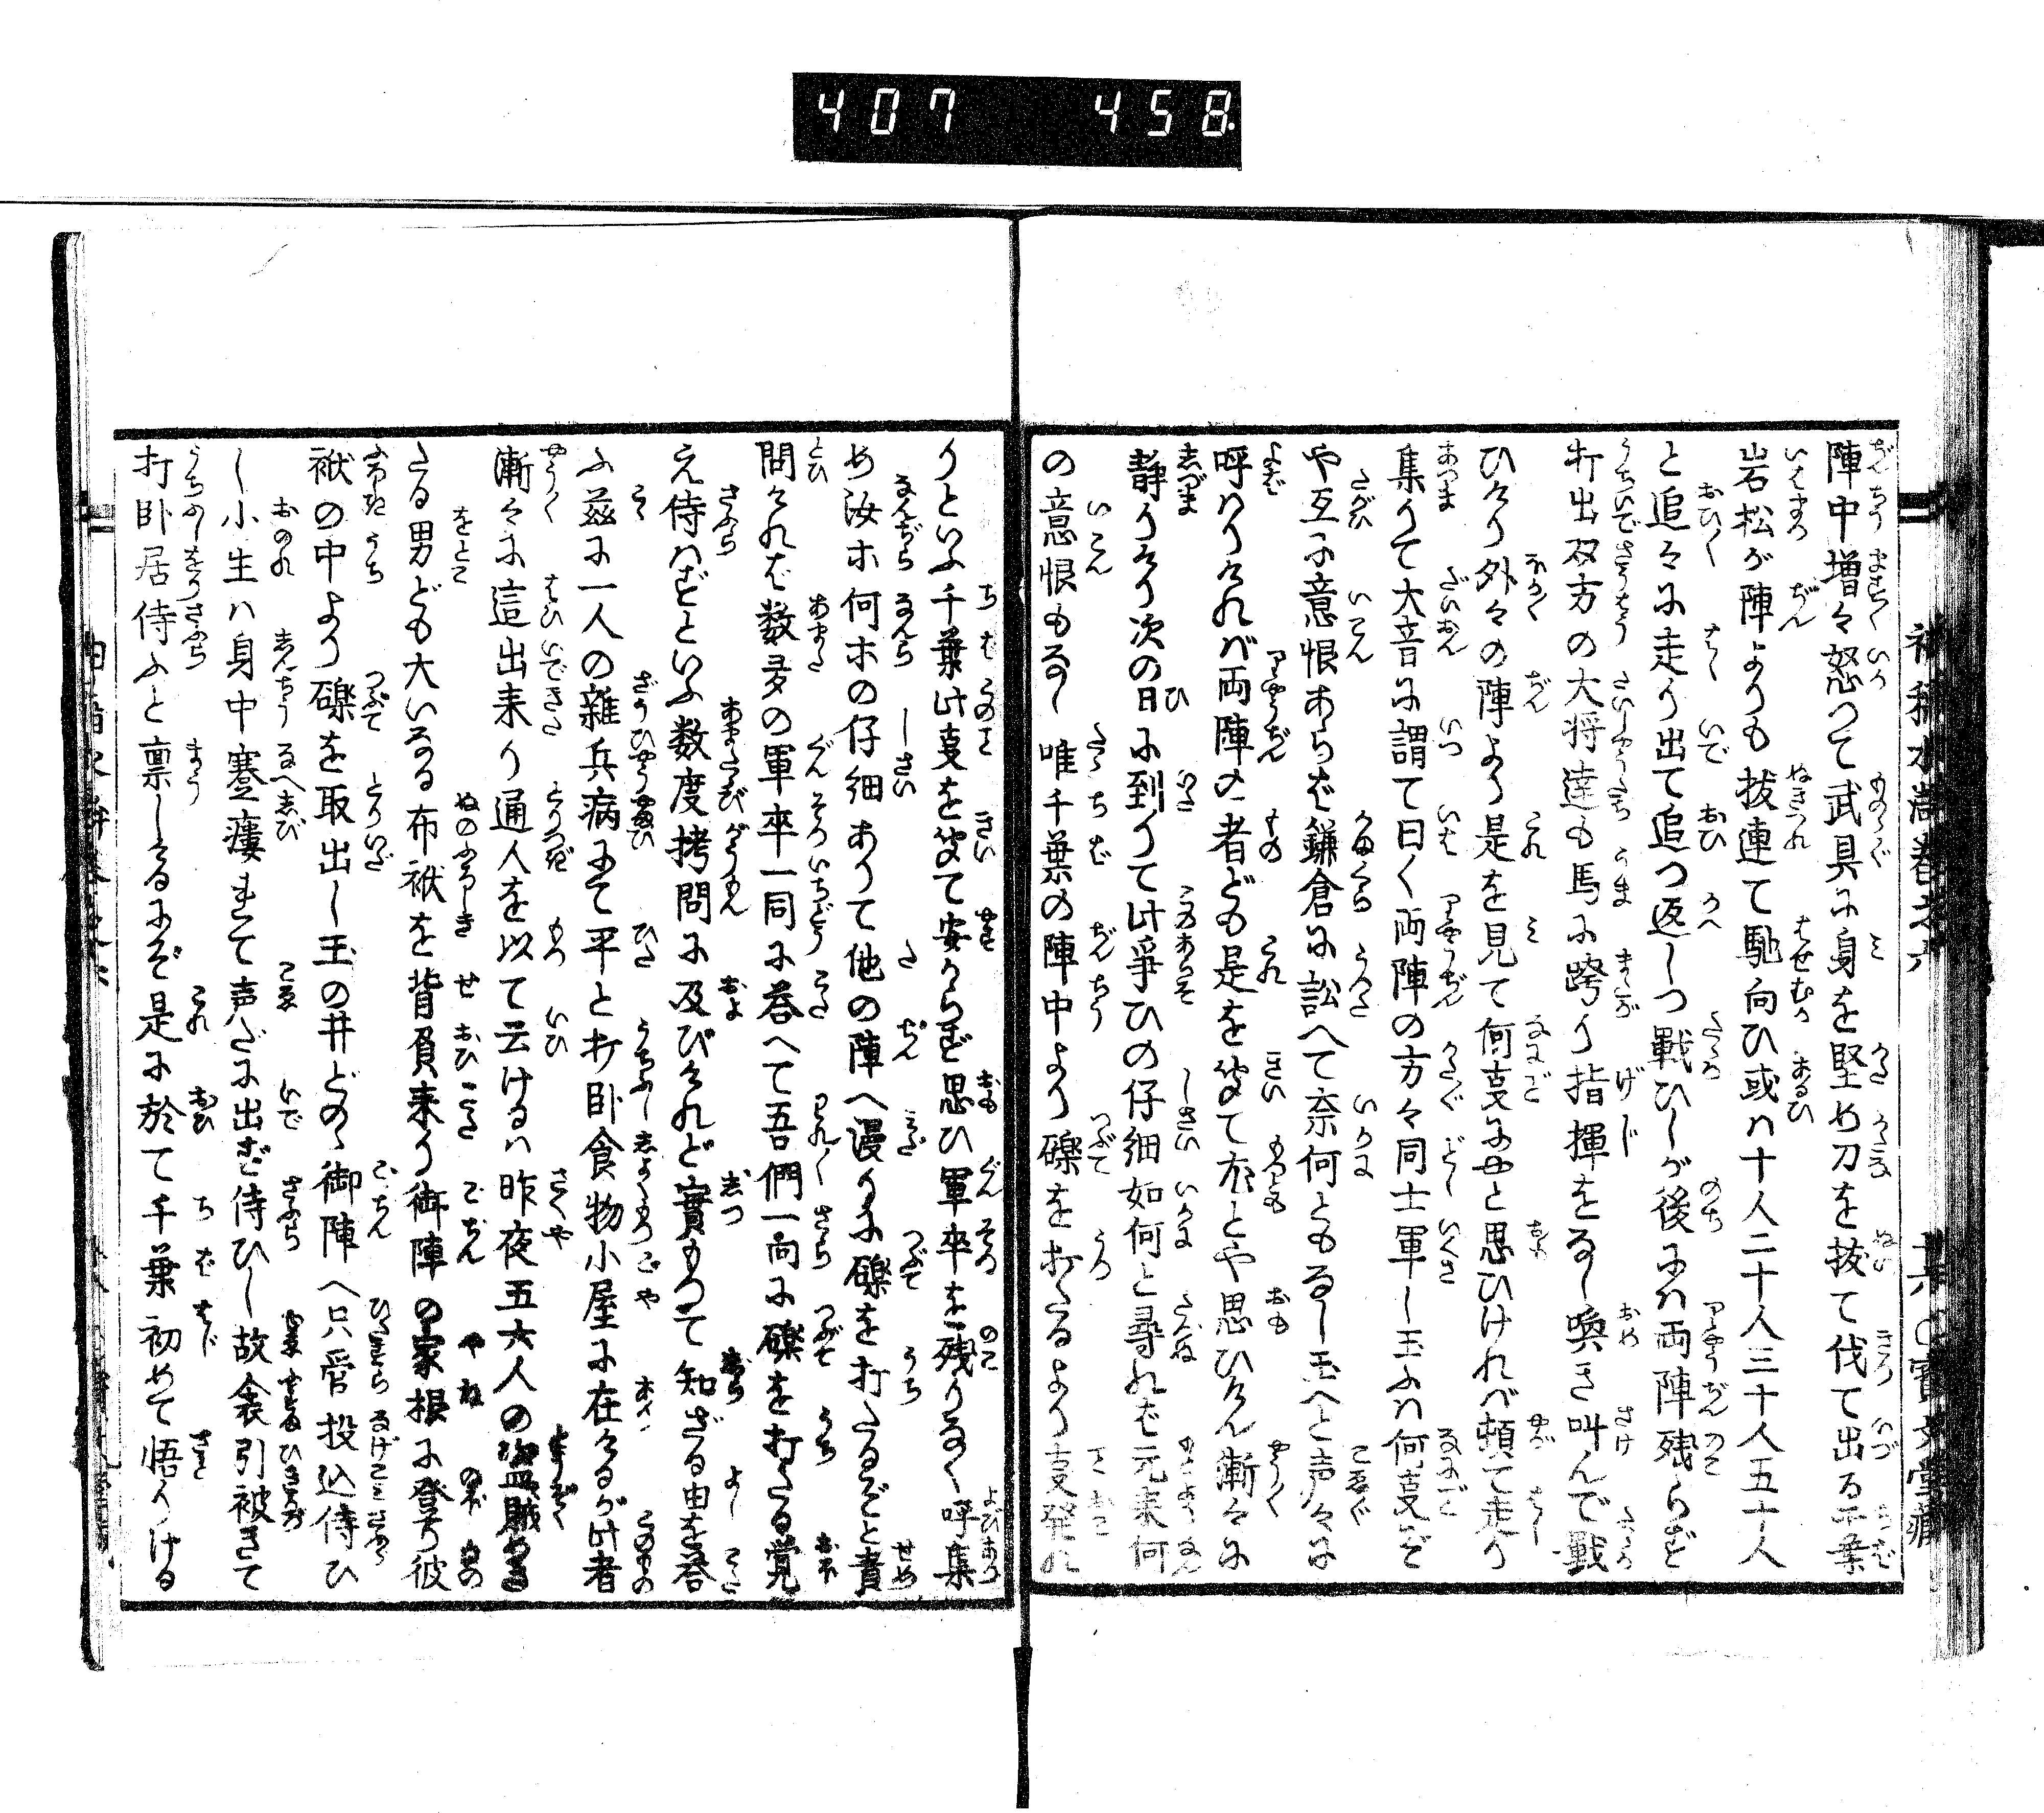 407 458
陣中増々怒つて武具に身を堅め刀を抜て伐て出る千葉
岩松が陣よりも抜連て馳向ひ或ハ十人二十人三十人五十人
と追々に走り出て追つ返しつ戦ひしが後にハ両陣残らず
打出双方の大将達も馬に跨り指揮をなし喚き叫んで戦
ひけり外々の陣より是を見て何事にやと思ひけれバ頓て走り
集りて大音に謂て曰く両陣の方々同士軍し玉ふハ何事ぞ
や互に意恨あらば鎌倉に訟へて奈何ともなし玉へと声々に
呼ハりけれバ両陣の者ども是を聞て尤とや思ひけん漸々に
静りけり次の日に到りて此爭ひの仔細如何と尋れば元来何
の意恨もなし唯千葉の陣中より礫を打たるより事発れ
りといふ千葉此事を聞て安からず思ひ軍卒を残りなく呼集
め汝ホ何ホの仔細ありて他の陣へ謾りに礫を打たるぞと責
問けれバ数多の軍卒一同に答へて吾們一向に礫を打たる覚
え侍ハずといふ数度拷問に及びけれど實もつて知ざる由を答
ふ茲に一人の雜兵病にて平と打卧食物小屋に在けるが此者
漸々に這出来り通人を以て云けるハ昨夜五六人の盗賊めき
たる男ども大いなる布袱を背負来り御陣の家根に登り彼
袱の中より礫を取出し玉の井どのゝ御陣へ只管投込侍ひ
し小生ハ身中蹇痿れて声だに出ず侍ひし故衾引被きて
打卧居侍ふと禀しるにぞ是に於て千葉初めて悟りける